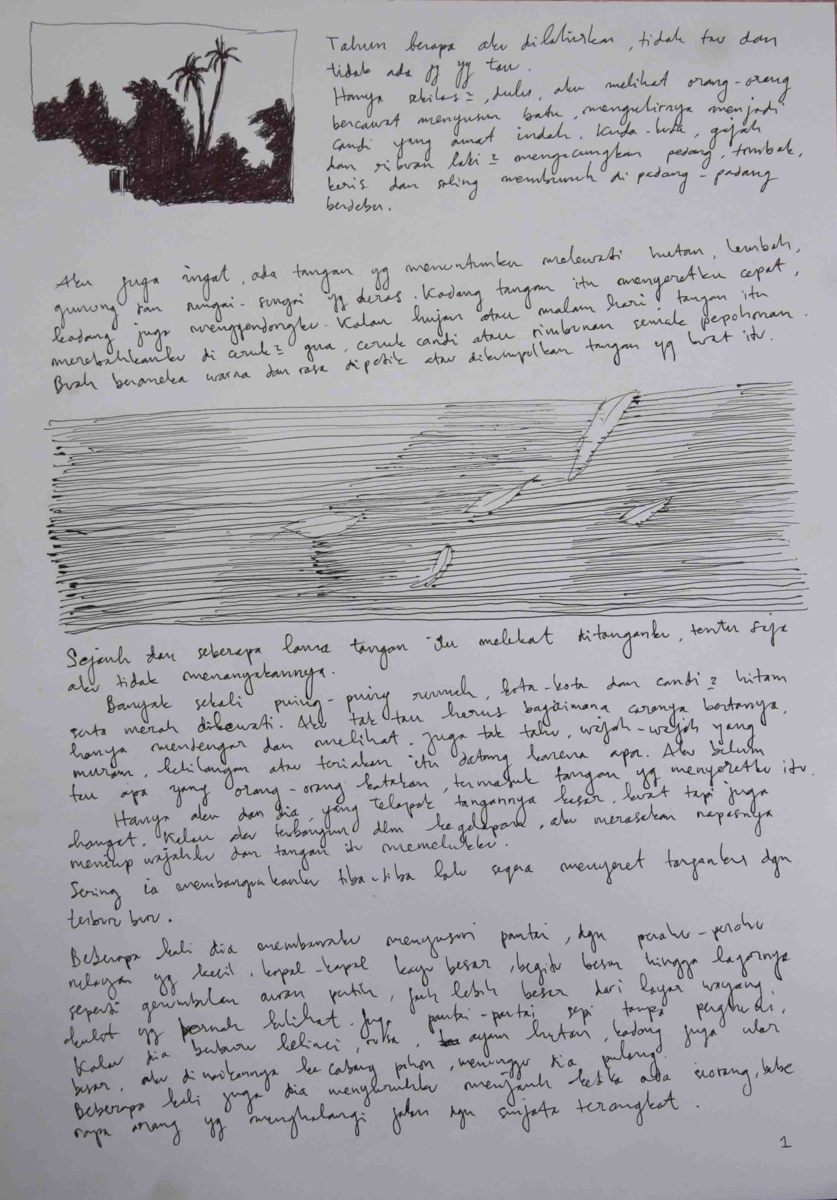 Tahun berapa aku dilahirkan, tidak tau dan
tidak ada yg tau.
Hanya sekilas², dulu, aku melihat orang-orang
bercawat menyusun batu, mengukirnya menjadi
candi yang amat indah. Kuda-kuda, gajah
dan ribuan laki² mengacungkan pedang, tombak,
keris dan saling membunuh di padang-padang
berdebu.
Aku juga ingat, ada tangan yg menuntunku melewati hutan, lembah,
gunung dan sungai-sungai yg deras. Kadang tangan itu menyeretku cepat,
kadang juga menggendongku. Kalau hujan atau malam hari, tangan itu
merebahkanku di ceruk² gua, ceruk candi atau rimbunan semak pepohonan.
Buah beraneka warna dan rasa dipetik atau dikumpulkan tangan yg kuat itu.
Sejauh dan seberapa lama tangan itu melekat ditanganku, tentu saja
aku tidak menanyakannya.
Banyak sekali puing-puing rumah, kota-kota dan candi² hitam
serta merah dilewati. Aku tak tau harus bagaimana caranya bertanya,
hanya mendengar dan melihat. Juga tak tahu, wajah-wajah yang
muram, kehilangan atau teriakan itu datang karena apa. Aku belum
tau apa yang orang-orang katakan, termasuk tangan yg menyeretku itu.
Hanya aku dan dia, yang telapak tangannya besar, kuat tapi juga
hangat. Kalau aku terbangun dlm kegelapan, aku merasakan napasnya
meniup wajahku dan tangan itu memelukku.
Sering ia membangunkanku tiba-tiba lalu segera menyeret tanganku dgn
terburu buru.
Beberapa kali dia membawaku menyusuri pantai, dgn perahu-perahu
nelayan yg kecil, kapal-kapal kayu besar, begitu besar hingga layarnya
seperti gerumbulan awan putih, jauh lebih besar dari layar wayang
yg pernah kulihat. Juga pantai-pantai sepi tanpa penghuni.
Kalau dia berburu kelinci, rusa, ayam hutan, kadang juga ular
besar, aku dinaikannya ke cabang pohon, menunggu dia pulang.
Beberapa kali juga dia menyuruhku menjauh ketika ada seorang, bebe
rapa orang yg menghalangi jalan dgn senjata terangkat.
1